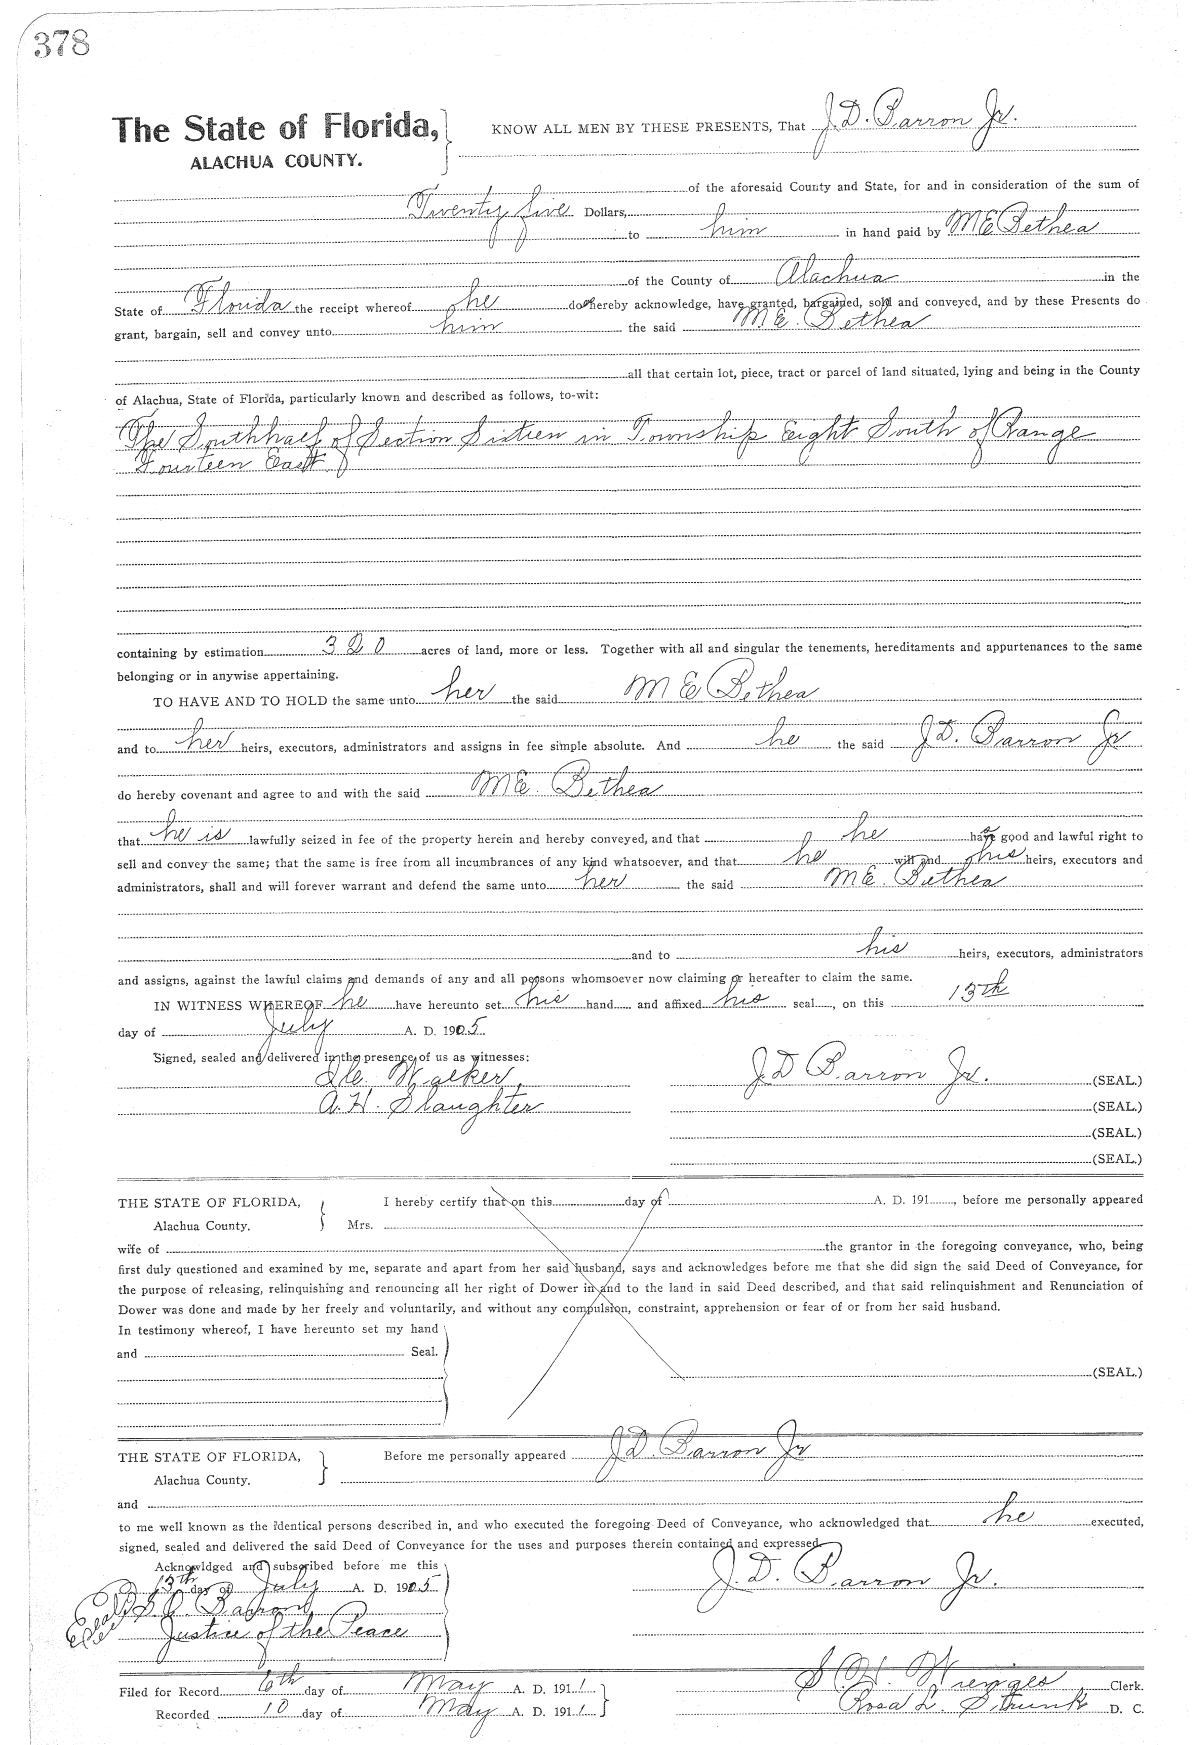 378
The State of Florida,
ALACHUA COUNTY.
KNOW ALL MEN BY THESE PRESENTS, That J. D. Barron Jr.
of the aforesaid County and State, for and in consideration of the sum of
Twenty five Dollars,
to him in hand paid by M E Bethea
of the County of Alachua in the
State of Florida the receipt whereof he does hereby acknowledge, have granted, bargained, sold and conveyed, and by these Presents do
grant, bargain, sell and convey unto him the said M. E. Bethea
all that certain lot, piece, tract or parcel of land situated, lying and being in the County
of Alachua, State of Florida, particularly known and described as follows, to-wit:
The South half of Section Sixteen in Township Eight South of Range
Fourteen East
containing by estimation 320 acres of land, more or less. Together with all and singular the tenements, hereditaments and appurtenances to the same
belonging or in anywise appertaining.
TO HAVE AND TO HOLD the same unto her the said M E Bethea
and to her heirs, executors, administrators and assigns in fee simple absolute. And he the said J. D. Barron Jr
do hereby covenant and agree to and with the said M E. Bethea
that he is lawfully seized in fee of the property herein and hereby conveyed, and that he has good and lawful right to
sell and convey the same; that the same is free from all incumbrances of any kind whatsoever, and that he will and his heirs, executors and
administrators, shall and will forever warrant and defend the same unto her the said M E. Bethea
and to his heirs, executors, administrators
and assigns, against the lawful claims and demands of any and all persons whomsoever now claiming or hereafter to claim the same.
IN WITNESS WHEREOF he have hereunto set his hand and affixed his seal, on this 13th
day of July A. D. 1905
Signed, sealed and delivered in the presence of us as witnesses:
Walker,
J. D Barron Jr. (SEAL.)
A. H. Slaughter
(SEAL.)
(SEAL.)
(SEAL.)
THE STATE OF FLORIDA,
Alachua County.
I hereby certify that on this day of A. D. 191 , before me personally appeared
Mrs.
wife of the grantor in the foregoing conveyance, who, being
first duly questioned and examined by me, separate and apart from her said husband, says and acknowledges before me that she did sign the said Deed of Conveyance, for
the purpose of releasing, relinquishing and renouncing all her right of Dower in and to the land in said Deed described, and that said relinquishment and Renunciation of
Dower was done and made by her freely and voluntarily, and without any compulsion, constraint, apprehension or fear of or from her said husband.
In testimony whereof, I have hereunto set my hand
and Seal.
(SEAL.)
THE STATE OF FLORIDA,
Alachua County.
Before me personally appeared J. D. Barron Jr
and
to me well known as the identical persons described in, and who executed the foregoing Deed of Conveyance, who acknowledged that he executed,
signed, sealed and delivered the said Deed of Conveyance for the uses and purposes therein contained and expressed.
Acknowldged and subscribed before me this
13th day of July A. D. 1905
J. D. Barron Jr.
Barron
Justice of the Peace
Filed for Record 6th day of May A. D. 1911
S. H. Wienges Clerk.
Recorded 10 day of May A. D. 1911
Rosa L. Strunk D. C.